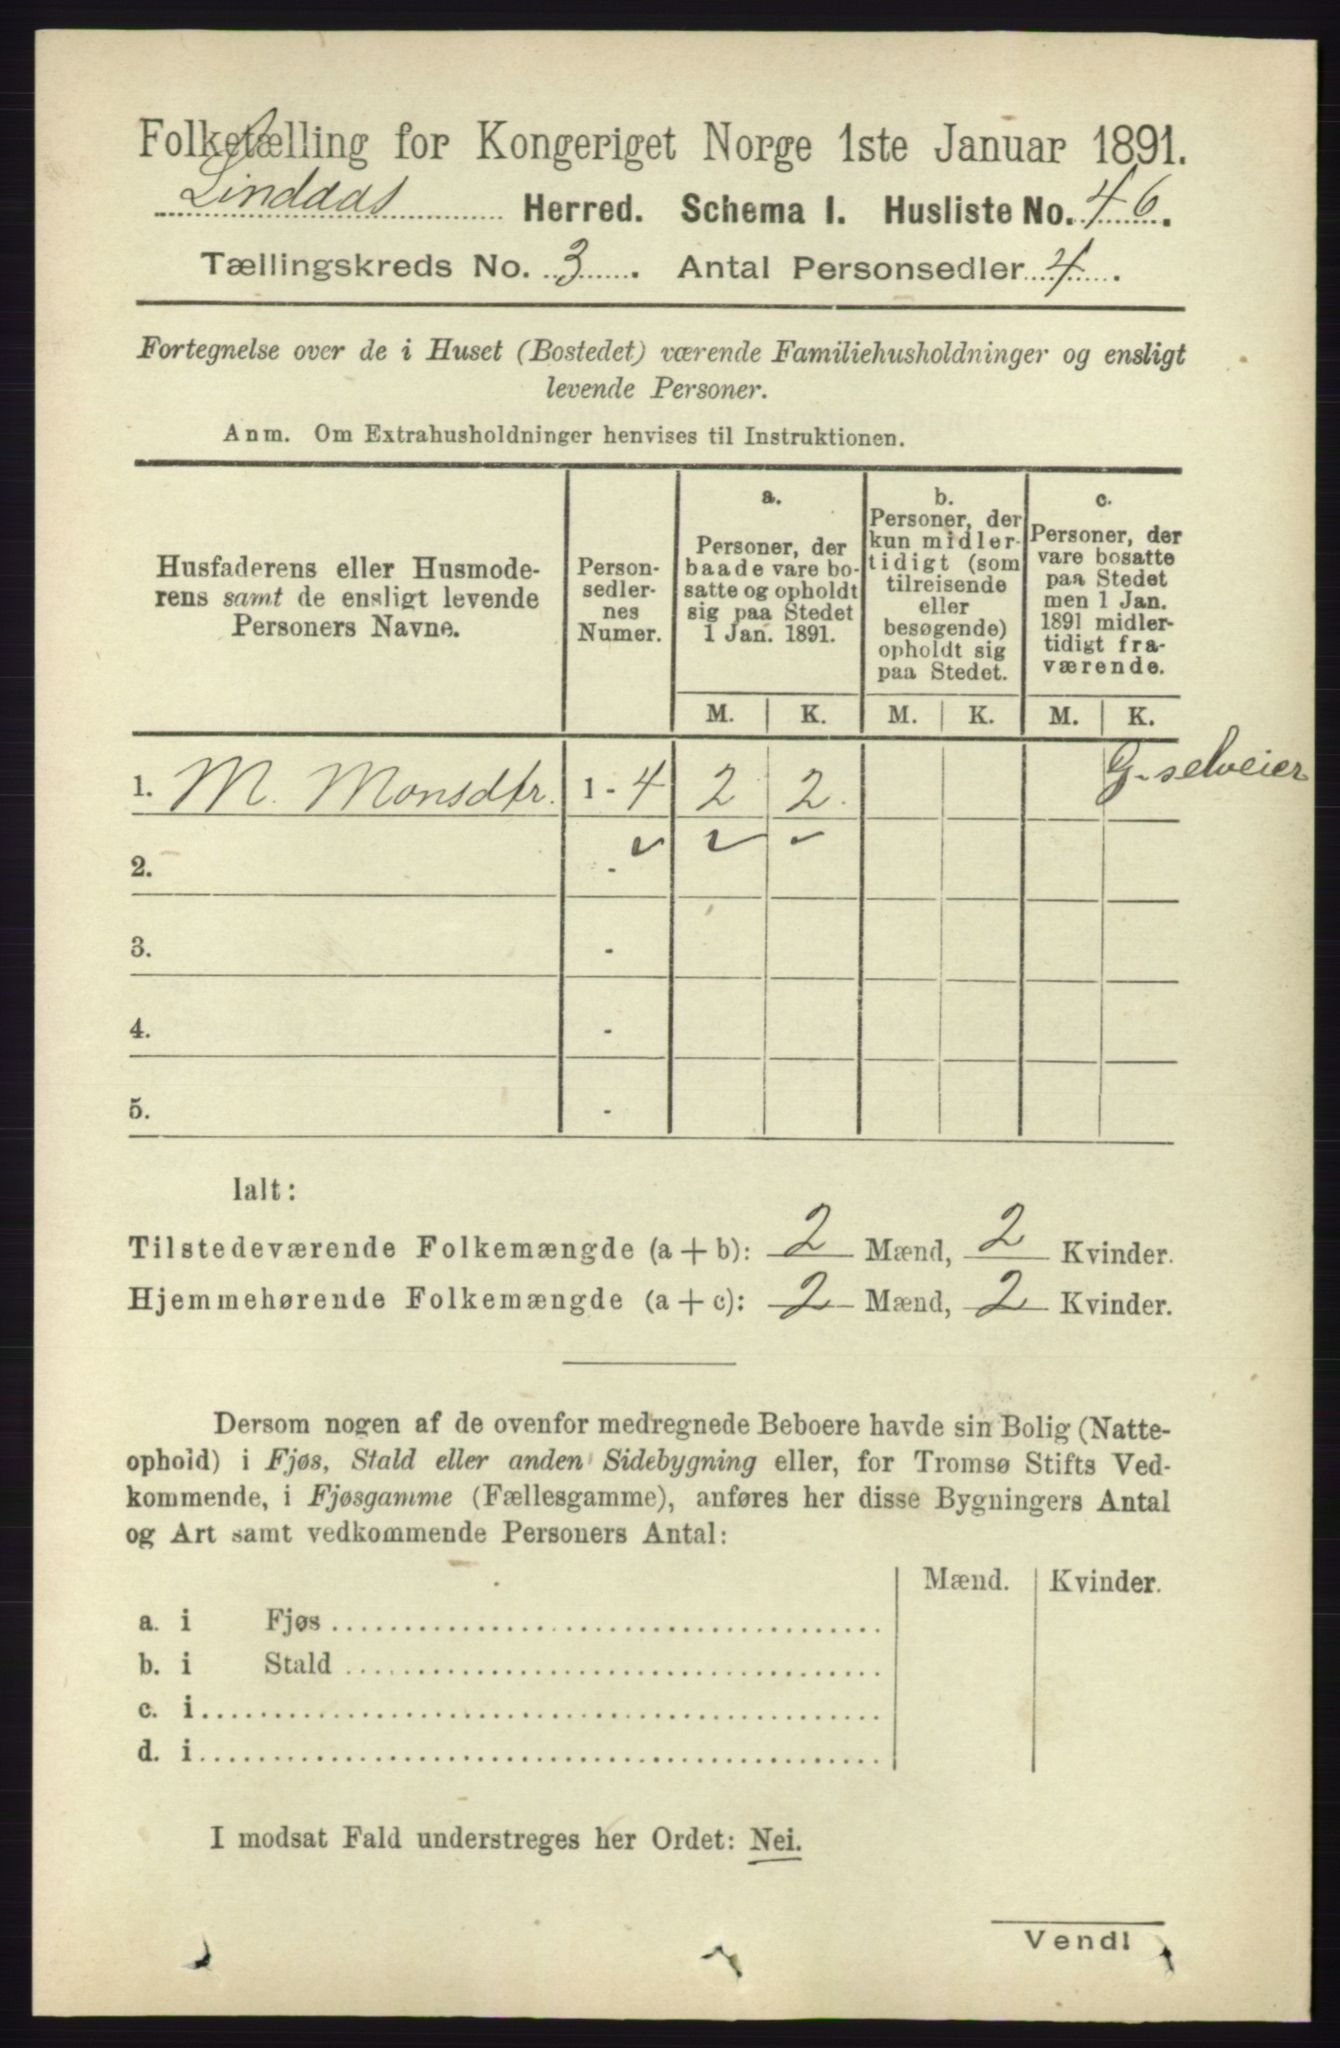 Folketælling for Kongeriget Norge 1ste Januar 1891.
Lindaas Herred. Schema I. Husliste No. 46.
Tællingskreds No. 3. Antal Personsedler 4.
Fortegnelse over de i Huset (Bostedet) værende Familiehusholdninger og ensligt
levende Personer.
Anm. Om Extrahusholdninger henvises til Instruktionen.
Husfaderens eller Husmode-
rens samt de ensligt levende
Personers Navne.
Person-
sedler-
nes
Numer.
a.
Personer, der
baade vare bo-
satte og opholdt
sig paa Stedet
1 Jan. 1891.
b.
Personer, der
kun midler-
tidigt (som
tilreisende
eller
besøgende)
opholdt sig
paa Stedet.
c.
Personer, der
vare bosatte
paa Stedet
men 1 Jan.
1891 midler-
tidigt fra-
værende.
M. K. M. K. M. K.
1. M. Monsdtr. 1 - 4 2 2 G-selveier
2. -
3. -
4. -
5. -
Ialt:
Tilstedeværende Folkemængde (a + b): 2 Mænd, 2 Kvinder.
Hjemmehørende Folkemængde (a + c): 2 Mænd, 2 Kvinder.
Dersom nogen af de ovenfor medregnede Beboere havde sin Bolig (Natte-
ophold) i Fjøs, Stald eller anden Sidebygning eller, for Tromsø Stifts Ved-
kommende, i Fjøsgamme (Fællesgamme), anføres her disse Bygningers Antal
og Art samt vedkommende Personers Antal:
Mænd. Kvinder.
a. i Fjøs
b. i Stald
c. i
d. i
I modsat Fald understreges her Ordet: Nei.
Vend!